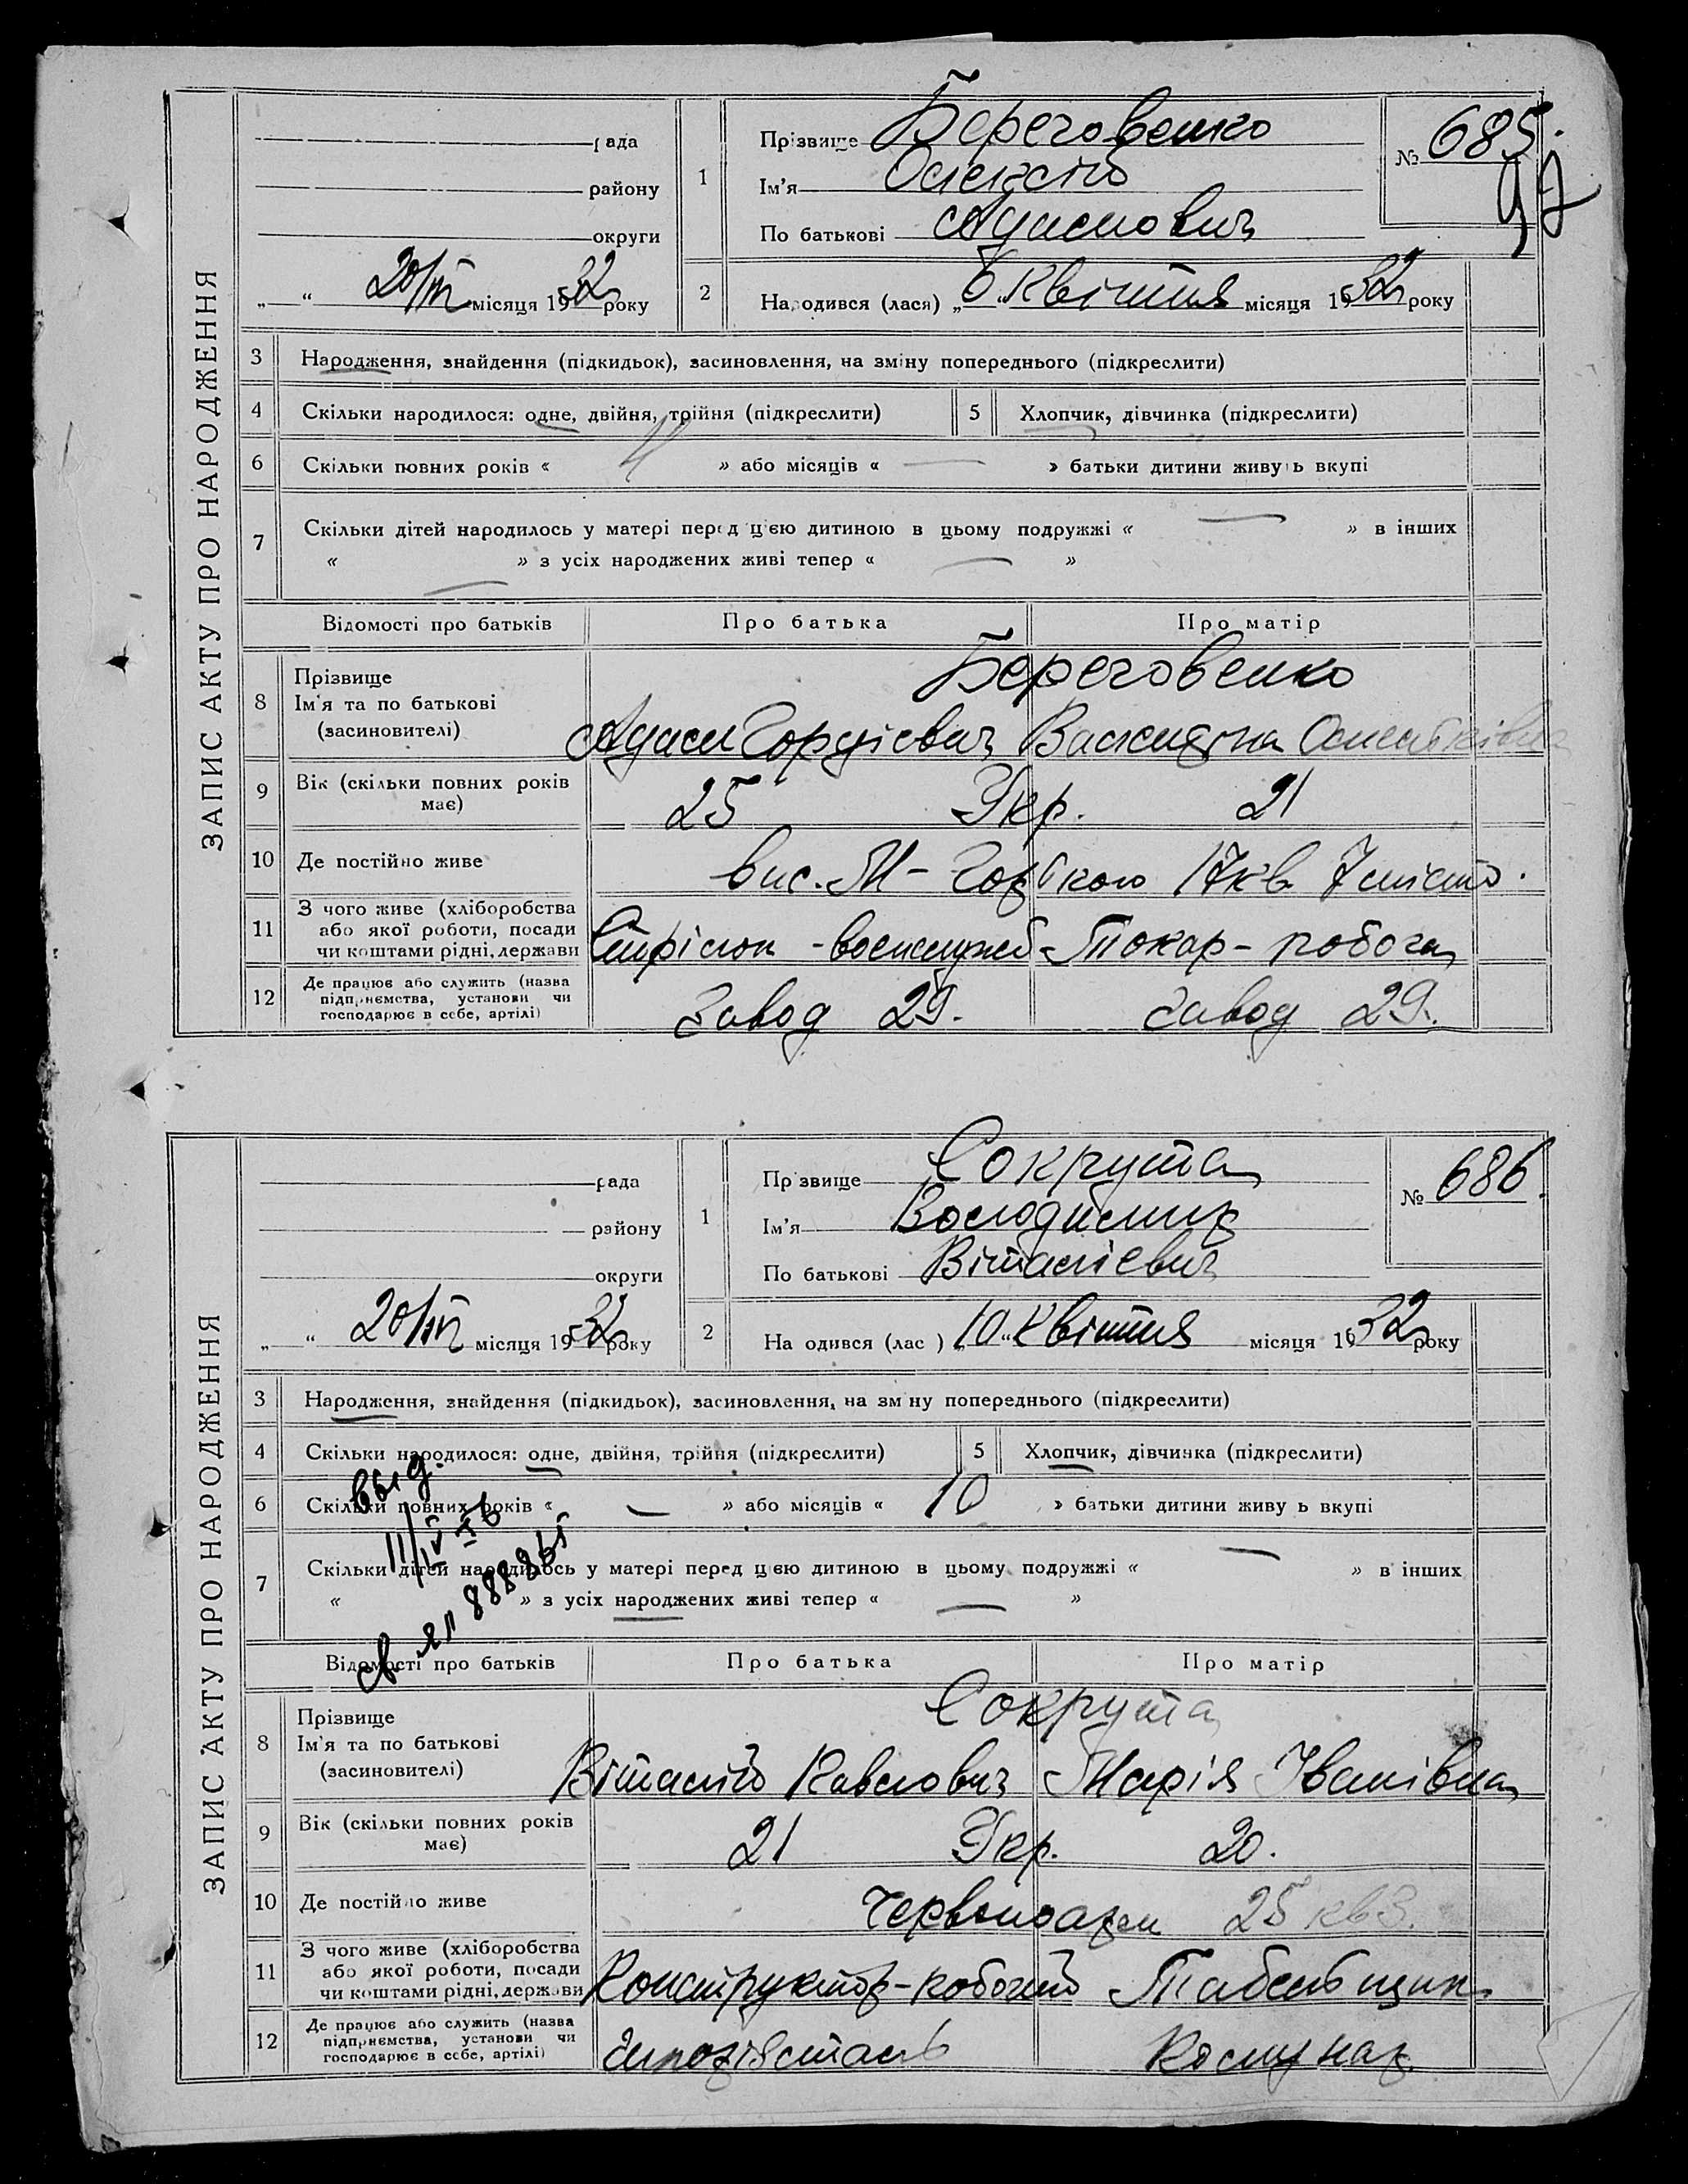 ЗАПИС АКТУ ПРО НАРОДЖЕННЯ
рада
району
округи
20/IV місяця 1932 року
1
Прізвище Береговенко
Ім'я Олексій
По батькові Адамович
№ 685.
2
Народився (лася) „6“ квітня місяця 1932 року
3 Народження, знайдення (підкидьок), засиновлення, на зміну попереднього (підкреслити)
4 Скільки народилося: одне, двійня, трійня (підкреслити)
5 Хлопчик, дівчинка (підкреслити)
6 Скільки повних років « 4 » або місяців « — » батьки дитини живуть вкупі
7 Скільки дітей народилось у матері перед цією дитиною в цьому подружжі « — » в інших
« — » з усіх народжених живі тепер « — »
Відомості про батьків Про батька Про матір
8 Прізвище
Ім'я та по батькові
(засиновителі)
Береговенко
Адам Гордієвич
9 Вік (скільки повних років має)
25 Укр. 21
10 Де постійно живе
вис. М-Горького 17 кв. 7
11 З чого живе (хліборобства або якої роботи, посади чи коштами рідні, держави
Стрілок - військслужб - Токар - робоча
12 Де працює або служить (назва підприємства, установи чи господарює в себе, артілі)
Завод 29. Завод 29.
ЗАПИС АКТУ ПРО НАРОДЖЕННЯ
рада
району
округи
20/IV місяця 1932 року
1
Прізвище Сокрута
Ім'я Володимир
По батькові Віталієвич
№ 686.
2
Народився (лася) „10“ квітня місяця 1932 року
3 Народження, знайдення (підкидьок), засиновлення, на зміну попереднього (підкреслити)
4 Скільки народилося: одне, двійня, трійня (підкреслити)
5 Хлопчик, дівчинка (підкреслити)
6 Скільки повних років « — » або місяців « 10 » батьки дитини живуть вкупі
7 Скільки дітей народилось у матері перед цією дитиною в цьому подружжі « — » в інших
« » з усіх народжених живі тепер « — »
выд.
Відомості про батьків Про батька Про матір
8 Прізвище
Ім'я та по батькові
(засиновителі)
Сокрута
Віталій Павлович Марія Іванівна
9 Вік (скільки повних років має)
21 Укр. 20.
10 Де постійно живе
25 кв 3.
11 З чого живе (хліборобства або якої роботи, посади чи коштами рідні, держави
Конструктор-робочий Табельщик
12 Де працює або служить (назва підприємства, установи чи господарює в себе, артілі)
Комунар.